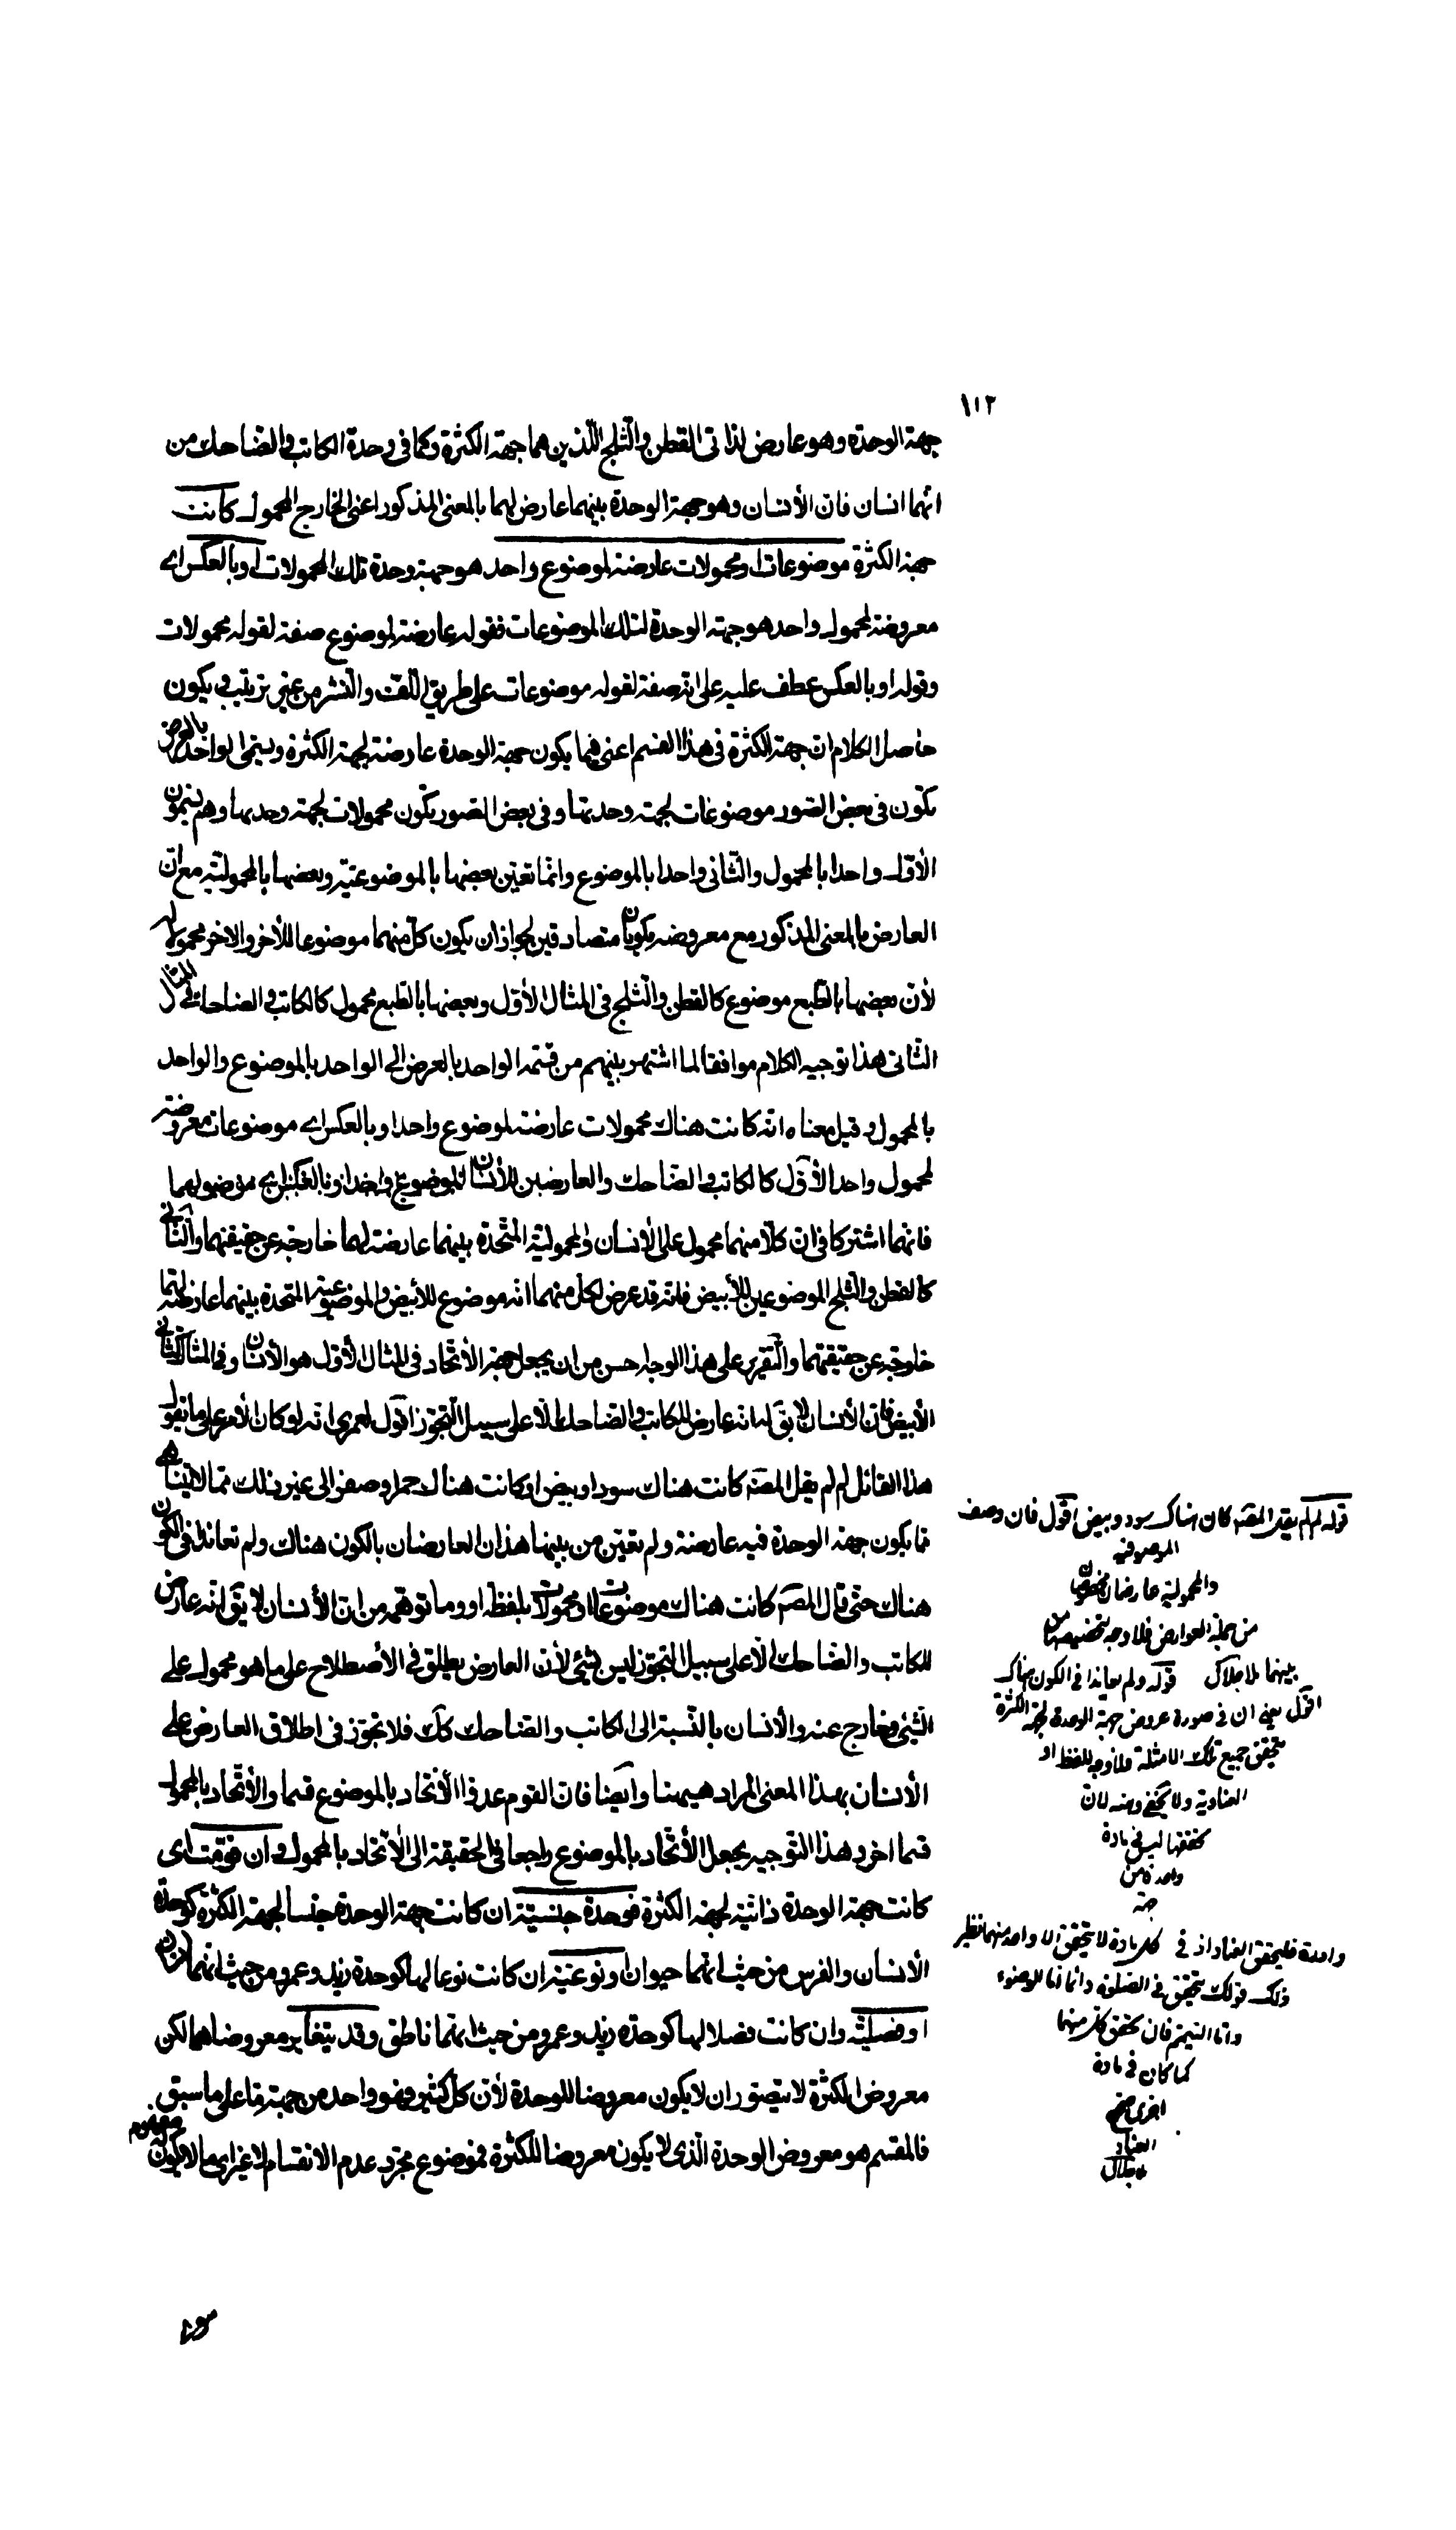 ١١٢
جهة الوحدة وهو عارض لذاتى القطن والثلج اللذين هما جهة الكثرة وكما فى وحدة الكاتب والضاحك من
انهما انسان فان الأنسان وهو جهة الوحدة بينهما عارض لهما بالمعنى المذكور اعنى الخارج المحمول كانت
جهة الكثرة موضوعات او محمولات عارضة لموضوع واحد هو جهة وحدة تلك المحمولات او بالعكس اے
معروضة لمحمول واحد هو جهة الوحدة لتلك الموضوعات فقوله عارضة لموضوع صفة لقوله محمولات
وقوله او بالعكس عطف عليه على انه صفة لقوله موضوعات على طريق اللف والنشر من غير ترتيب فيكون
حاصل الكلام ان جهة الكثرة فى هذا القسم اعنى فيما يكون جهة الوحدة عارضة لجهة الكثرة ويسمى الواحد بالعرض
تكون فى بعض الصور موضوعات لجهة وحدتها وفى بعض الصور يكون محمولات لجهة وحدتها وهم يسمون
الأول واحدا بالمحمول والثانى واحدا بالموضوع وانما تعين بعضها بالموضوعية وبعضها بالمحمولية مع ان
العارض بالمعنى المذكور مع معروضه يكونان متصادقين لجواز ان يكون كل منهما موضوعا للأخر والاخر محمولا له
لأن بعضها بالطبع موضوع كالقطن والثلج فى المثال الأول وبعضها بالطبع محمول كالكاتب والضاحك فى المثال
الثانى هذا توجيه الكلام موافقا لما اشتهر بينهم من قسمة الواحد بالعرض الى الواحد بالموضوع والواحد
بالمحمول وقيل معناه انه كانت هناك محمولات عارضة لموضوع واحد او بالعكس اے موضوعات معروضة
لمحمول واحد الأول كالكاتب والضاحك والعارضين للأنسان الموضوع
فانهما اشتركا فى ان كلا منهما محمول على الأنسان والمحمولية المتحدة بينهما عارضة لهما خارجة عن حقيقتهما والثانى
كالقطن والثلج الموضوعين للأبيض فانه قد عرض لكل منهما انه موضوع للأبيض والموضوعية المتحدة بينهما عارضة لهما
خارجة عن حقيقتهما والتقرير على هذا الوجه احسن من ان يجعل جهة الأتحاد فى المثال الأول هو الأنسان وفى المثال الثانى
الأبيض فان الأنسان لا يق له انه عارض للكاتب والضاحك الا على سبيل التجوز اقول لعمرى انه لو كان الأمر على ما تقوله
هذا القائل لم لم يقل المصنه كانت هناك سود او بيض او كانت هناك حمر او صفر الى غير ذلك مما لا يتناهى
مما يكون جهة الوحدة فيه عارضة ولم تعين من بينها هذان العارضان بالكون هناك ولم تعاندا فى الكون
هناك حتى قال المصه كانت هناك موضوعات او محمولات بلفظة او وما توهمه من ان الأنسان لا يق انه عارض
للكاتب والضاحك الا على سبيل التجوز ليس بشئ لأن العارض يطلق فى الأصطلاح على ما هو محمول على
الشئ وخارج عنه والأنسان بالنسبة الى الكاتب والضاحك كك فلا تجوز فى اطلاق العارض على
الأنسان بهذا المعنى المراد هيهنا وايضا فان القوم عدوا الأتحاد بالموضوع قسما والأتحاد بالمحمول
قسما اخر وهذا التوجيه يجعل الأتحاد بالموضوع راجعا فى الحقيقة الى الأتحاد بالمحمول وان قومت اى
كانت جهة الوحدة ذاتية لجهة الكثرة فوحدة جنسية ان كانت جهة الوحدة جنسا لجهة الكثرة كوحدة
الأنسان والفرس من حيث انهما حيوان او نوعية ان كانت نوعا لها كوحدة زيد وعمرو من حيث انهما انسان
او فصلية وان كانت فصلا لها كوحدة زيد وعمرو من حيث انهما ناطق وقد يتغاير معروضاهما لكن
معروض الكثرة لا يتصور ان لا يكون معروضا للوحدة لأن كل كثير فهو واحد من جهة ما على ما سبق
فالمقسم هو معروض الوحدة الذى لا يكون معروضا للكثرة فموضوع مجرد عدم الانقسام لا غير اى ما لا يكون
قوله لم لم يقل المصه كان هناك سود وبيض اقول فان وصف
الموضوعية
والمحمولية عارضان مخصوصان
من جملة العوارض فلا وجه لتخصيصهما من
بينهما ملا جلال قوله ولم يعاندا فى الكون هناك
اقول يعنى ان فى صورة عروض جهة الوحدة لجهة الكثرة
يتحقق جميع تلك الامثلة ولا وجه للفظ او
العنادية ولا يخفى وهنه لان
تحققها ليس فى مادة
واحدة من
جهة
واحدة فليتحقق العناد اذ فى كل مادة لا يتحقق الا واحد منهما نظير
ذلك قولك يتحقق فى الصلوة دائما اما الوضوء
واما التيمم فان تحقق كل منهما
كما كان فى مادة
اخرى صح
العناد
ملا جلال